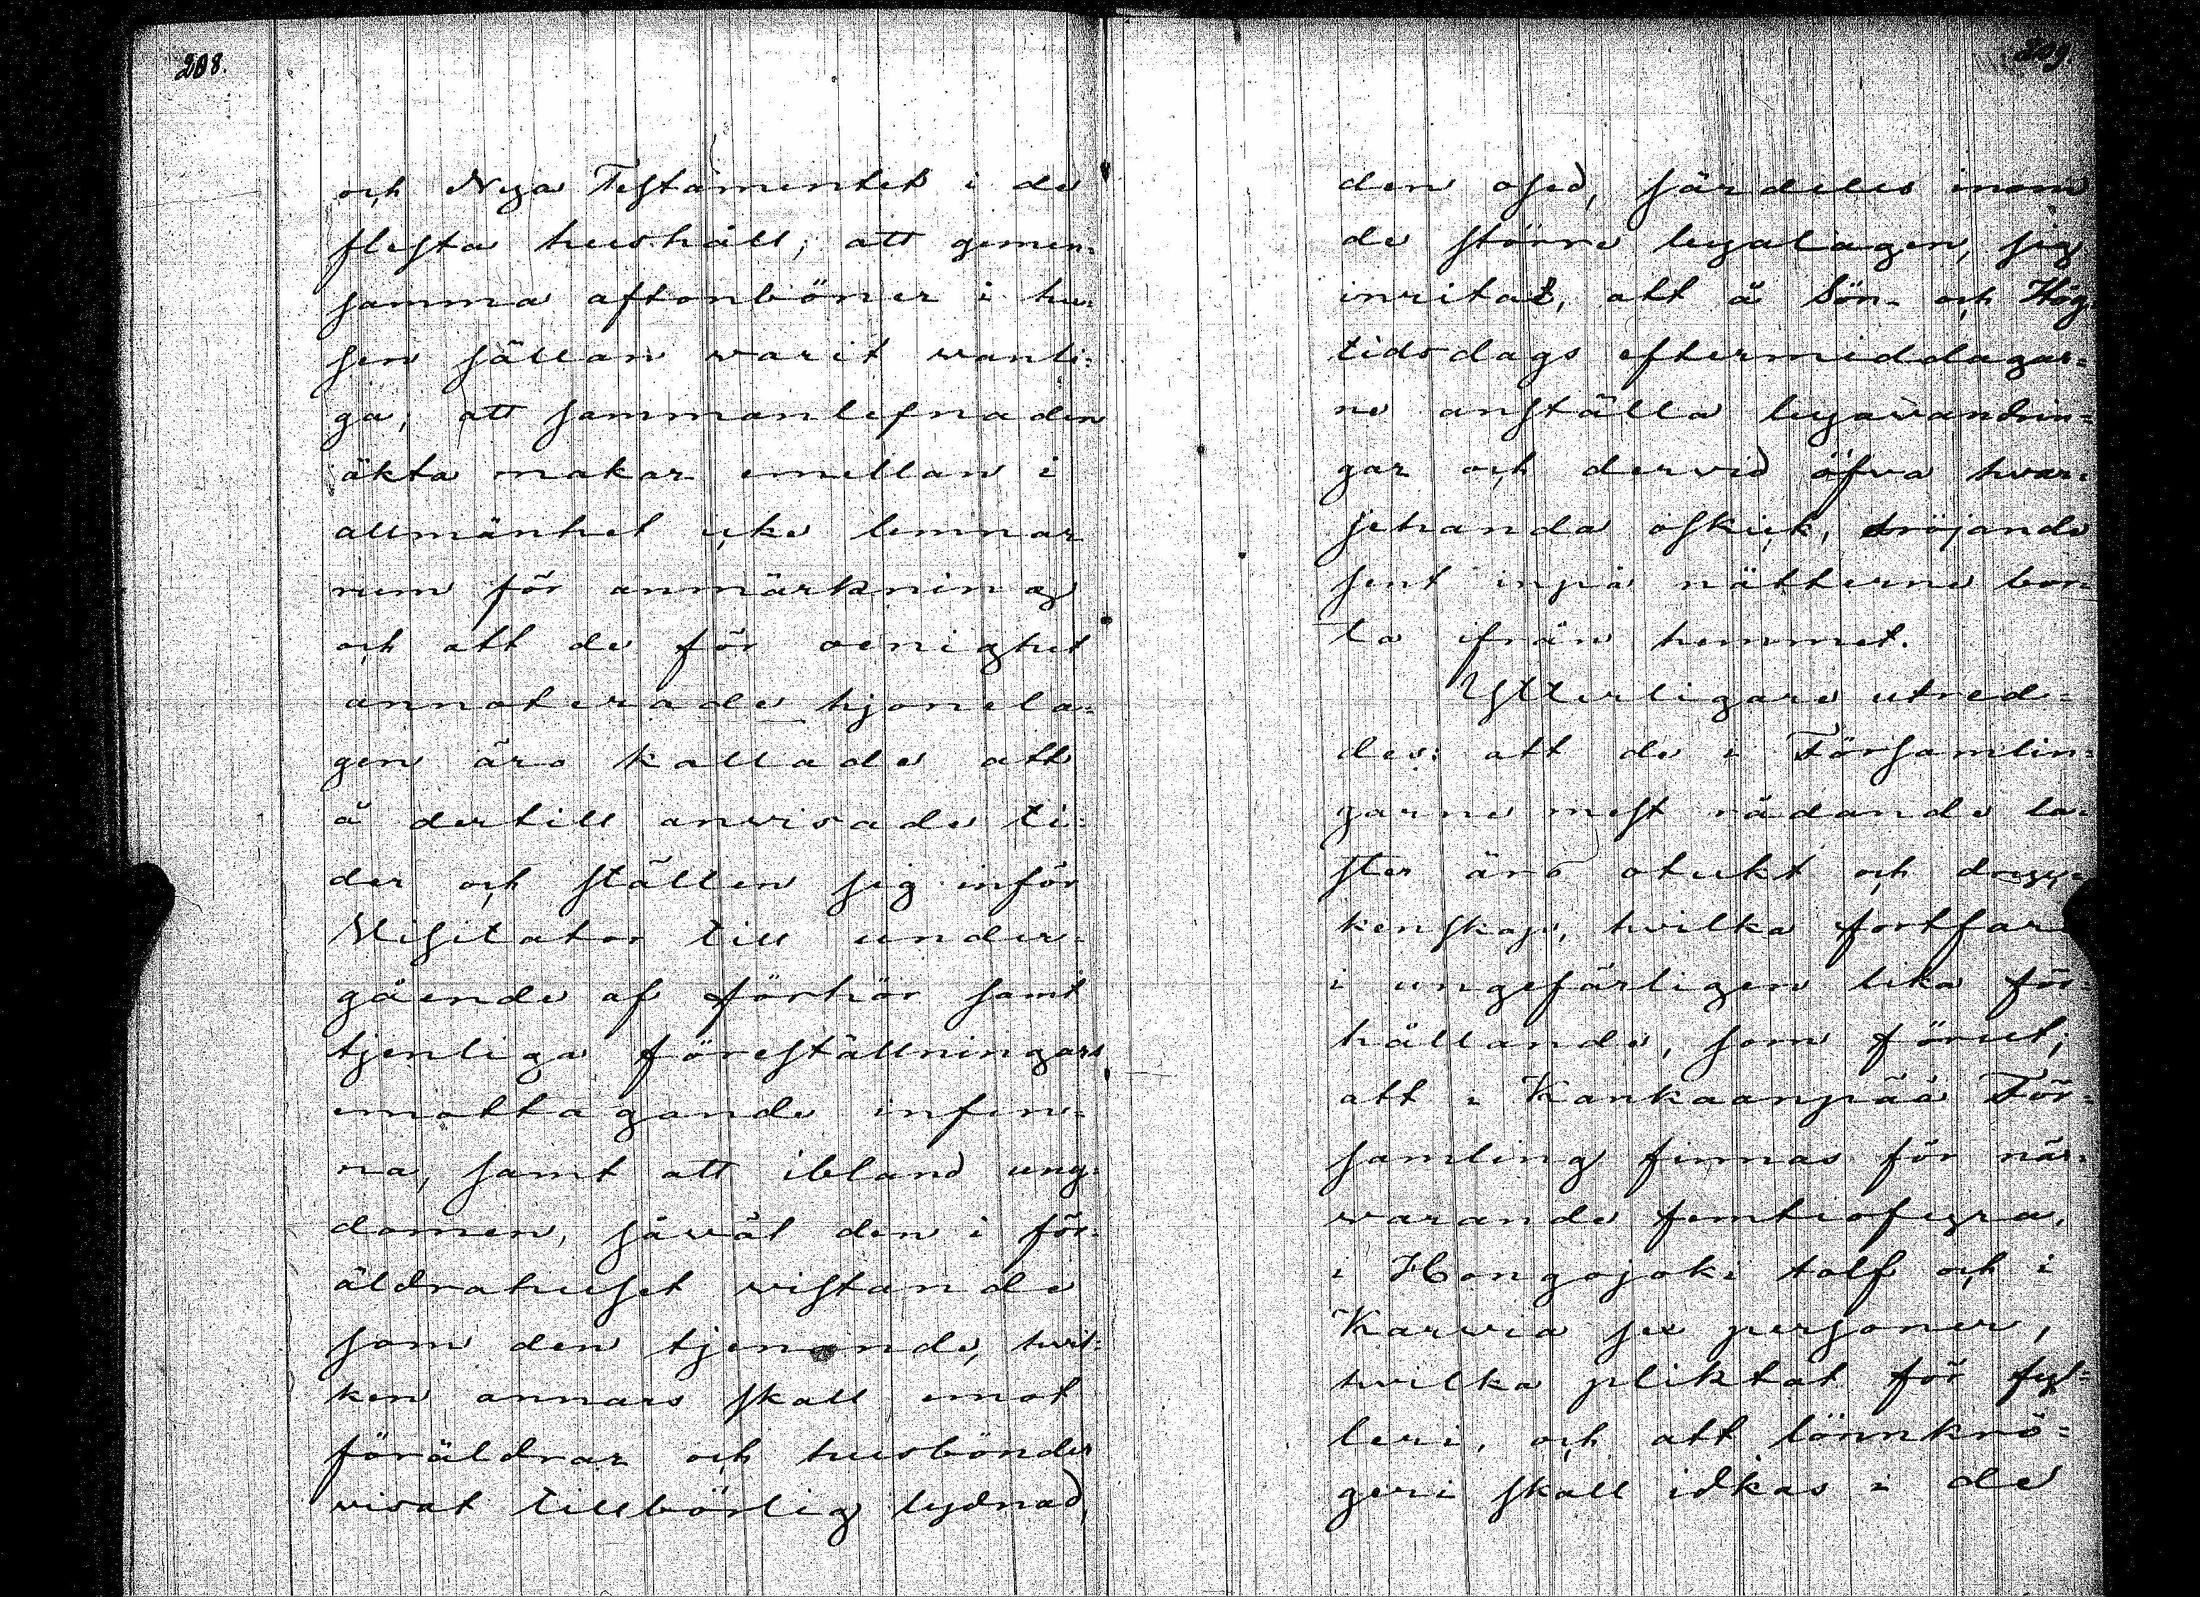 208.
och Nya Testamentet i de
flesta hushåll; att gemen-
samma aftonböner i hu-
sen sällan warit wanli-
ga; att sammanlefnaden
äkta makar emellan i
allmänhet icke lemnar
rum för anmärkning
och att de för oenighet
annoterade hjonela-
gen äro kallade att
å dertill anvisade ti-
der och ställen sig inför
Visitator till under-
gående af förhör samt
tjenliga föreställningars
emottagande infin-
na, samt att ibland ung-
domen, såväl den i för-
äldrahuset vistande
som den tjenande, hvil-
ken annars skall emot
föräldrar och husbönder
visat tillbörlig lydnad,
209.
den osed, särdeles inom
de större byalagen, sig
inritat, att å Sön- och Hög
tidsdags eftermiddagar-
ne anställa byavandrin-
gar och dervid öfva hvar-
jehanda oskick, dröjande
sent inpå nätterne bor-
ta ifrån hemmet.
Ytterligare utred-
des: att de i Församlin-
garne mest rådande la-
ster äro otukt och dryc-
kenskap, hvilka fortfara
i ungefärligen lika för-
hållande, som förut;
att i Kankaanpää För-
samling finnas för när-
warande femtiofyra,
i Hongojoki tolf och i
Karvia sex personer,
hvilka pliktat för fyl-
leri, och att lönnkrö-
geri skall idkas i de